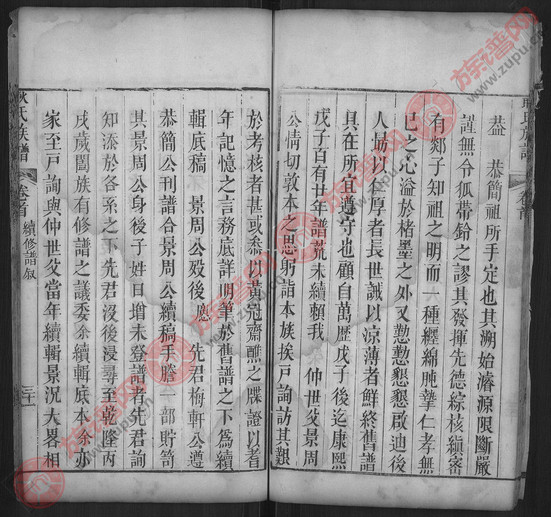 恭簡祖所手定也其溯始濬源限斷嚴
謹無令狐帶鈴之謬其發揮先德綜核縝審
有郯子知祖之明而一種纏綿肫摯仁孝無
已之心溢於楮墨之外又懃懃懇懇啟迪後
人惓以仁厚者長世誡以涼薄者鮮終舊譜
具在所宜遵守也顧自萬歷戊子後迄康熙
戊子百有廿年譜荒未續賴我　仲世父景周
公情切敦本之思躬詰本族挨戸詢訪其艱
於考核者甚或黍以黃冠齋醮之牒證以耆
年記憶之言務底詳明筆於舊譜之下爲續
輯底稿　景周公歿後應　先君梅軒公遵
恭簡公刊譜合景周公續稿手謄一部貯笥
其景周公身後子姓日增未登譜者先君詢
知添於各系之下先君沒後浸尋至乾隆丙
戌歲闔族有修譜之議委余續輯底本余亦
家至戸詢與仲世父當年續輯景況大畧相
耿氏族譜
卷首
續修譜叙
三十
氏族譜
卷首
族谱网
www.zupu.cn
族谱网
www.zupu.cn
族谱网
www.zupu.cn